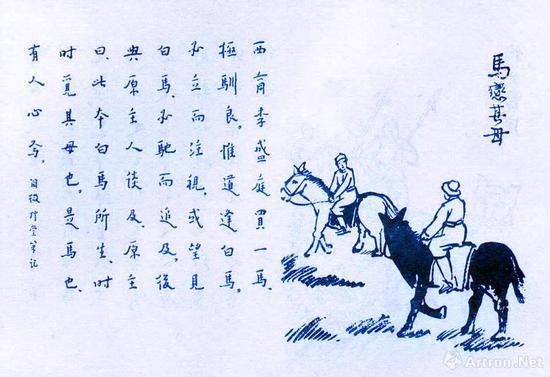 馬戀其母
西商李盛庭買一馬、
極馴良。惟道逢白馬。
必立而注視。或望見
白馬、必馳而追及。後
與原主人談及、原主
曰、此本白馬所生、时
时覓其母也。是馬也、
有人心焉。閱微草堂筆記
Artron.Net